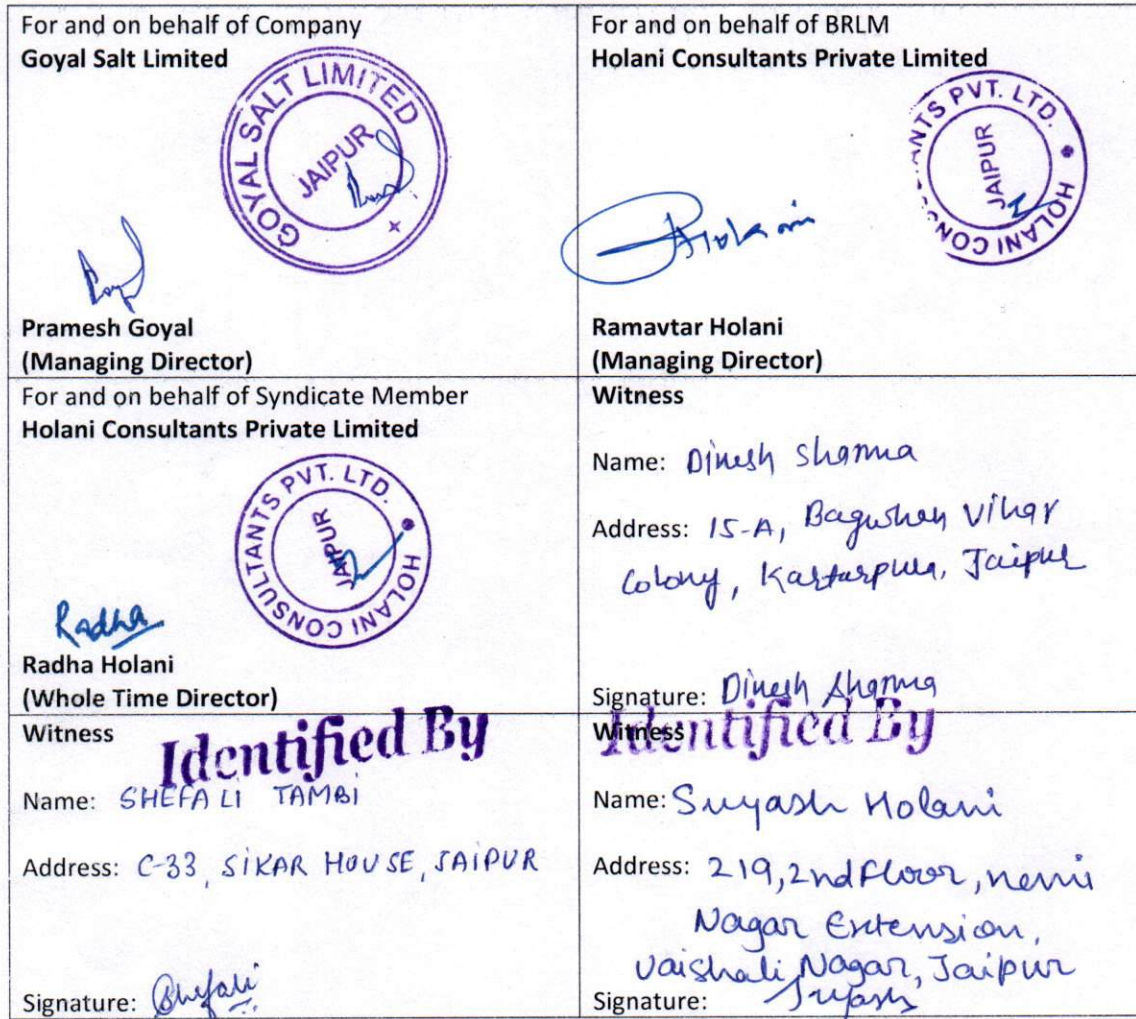 For and on behalf of Company
Goyal Salt Limited
GOYAL SALT LIMITED
JAIPUR
Pramesh Goyal
(Managing Director)
For and on behalf of BRLM
Holani Consultants Private Limited
HOLANI CONS ANTS PVT. LTD.
JAIPUR
Holani
Ramavtar Holani
(Managing Director)
For and on behalf of Syndicate Member
Holani Consultants Private Limited
HOLANI CONSULTANTS PVT. LTD.
JAIPUR
Radha
Radha Holani
(Whole Time Director)
Witness
Name: Dinesh Sharma
Address: 15-A, Vihar
Colony, Jaipur
Signature: Dinesh Sharma
Witness
Identified By
Name: SHEFALI TAMBI
Address: C-33, SIKAR HOUSE, JAIPUR
Signature: Shefali
Witness
Identified By
Name: Suyash Holani
Address: 219, 2nd Floor, nemi
Nagar Extension,
Vaishali Nagar, Jaipur
Signature: Suyash